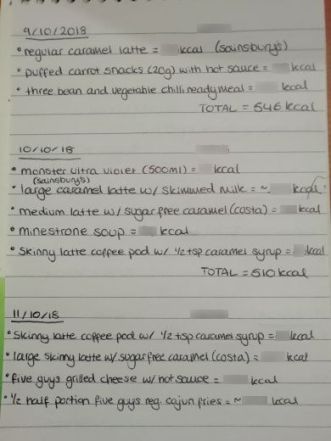 9/10/2018
• regular caramel latte = kcal (sainsbury's)
• puffed carrot snacks (20g) with hot sauce = kcal
• three bean and vegetable chilli readymeal = kcal
TOTAL = 546 kcal
10/10/18
• monster ultra violet (500ml) = kcal
(sainsbury's)
• large caramel latte w/ skimmed milk = ~ kcal
• medium latte w/ sugar free caramel (costa) = kcal
• minestrone soup = kcal
• skinny latte coffee pod w/ 1/2 tsp caramel syrup = kcal
TOTAL = 510 kcal
11/10/18
• skinny latte coffee pod w/ 1/2 tsp caramel syrup = kcal
• large skinny latte w/ sugar free caramel (costa) = kcal
• five guys grilled cheese w/ hot sauce = kcal
• 1/2 half portion five guys reg. cajun fries = ~ kcal